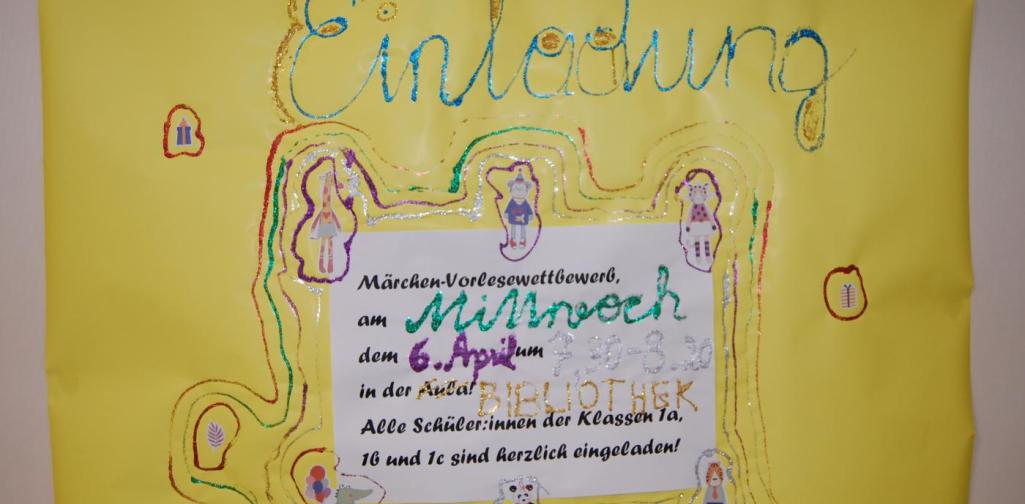 Einladung
Märchen-Vorlesewettbewerb,
am Mittwoch
dem 6. April um 7,30-8.20
in der Aula! BIBLIOTHEK
Alle Schüler:innen der Klassen 1a,
1b und 1c sind herzlich eingeladen!